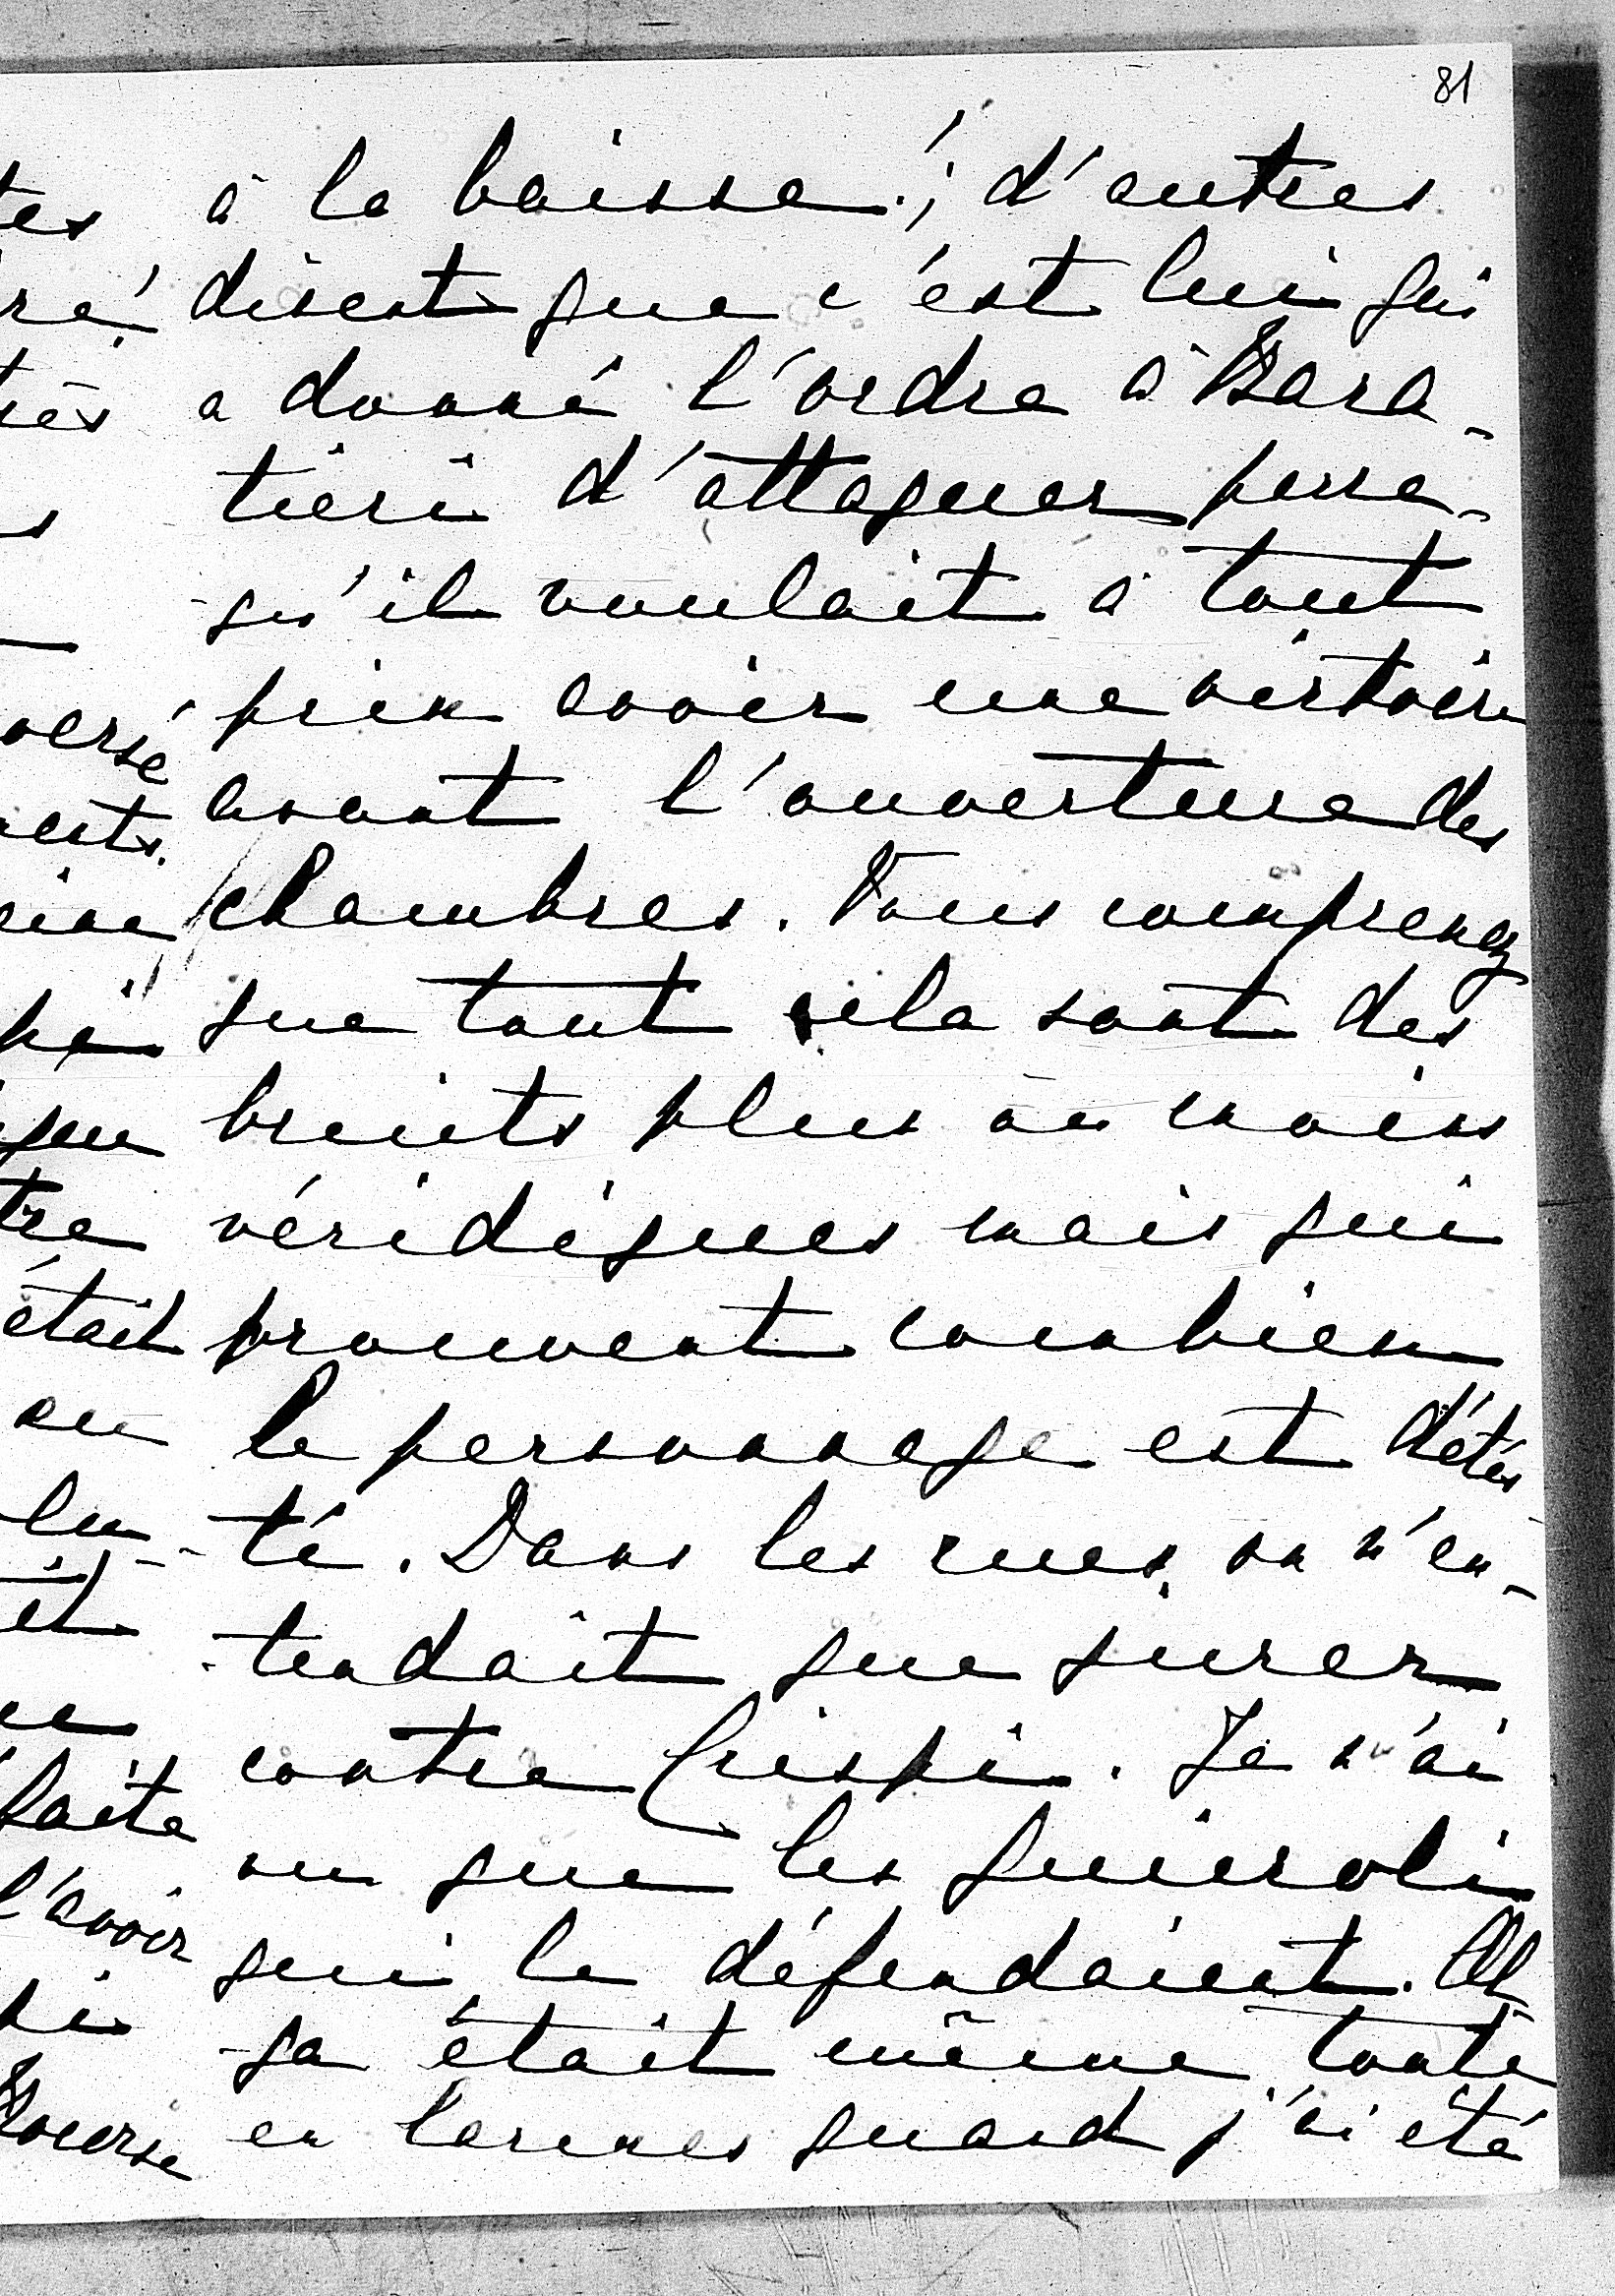 81
à la baisse!; d'autres
disent que c'est lui qui
a donné l'ordre à Bara-
tieri d'attaquer parce-
qu'il voulait à tout
prix avoir une victoire
avant l'ouverture des
chambres. Vous comprenez
que tout cela sont des
bruits plus ou moins
véridiques mais qui
prouvent combien
le personnage est détes
-té. Dans les rues, on n'en-
-tendait que jurer
contre Crispi. Je n'ai
vu que les
qui le défendaient.
-ga était même toute
en larmes quand j'ai été
tes
ré
très
s
versé
pi
que
tre
était
au
lu-
et
faite
l'avoir
pi
Bourse